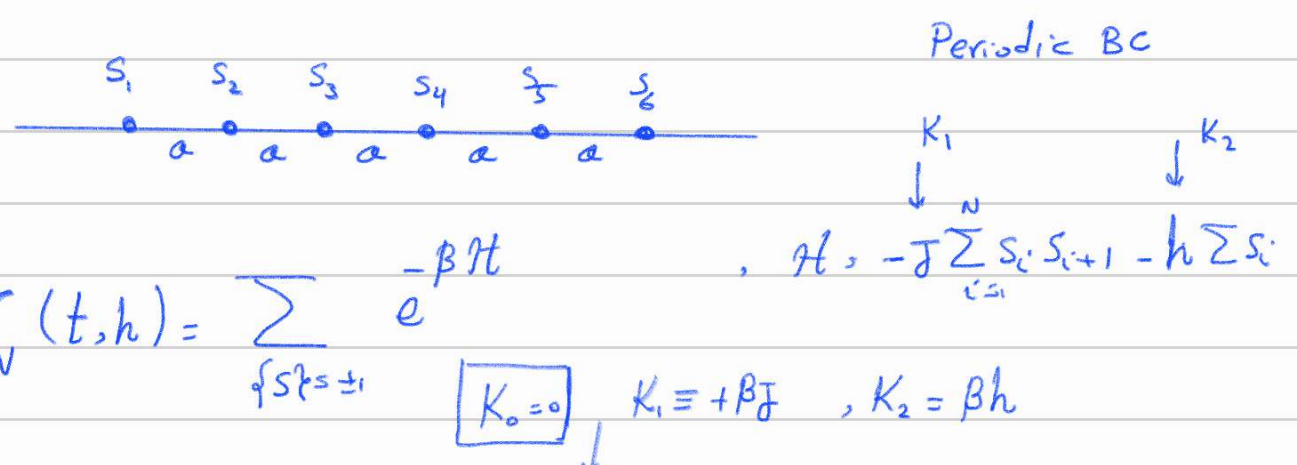 Periodic BC
S₁ S₂ S₃ S₄ S₅ S₆
a a a a a
K₁ K₂
(t,h) = ∑_{{S}=±1} e^{-βH} , H = -J ∑_{i=1}^{N} Sᵢ Sᵢ₊₁ - h ∑ Sᵢ
K₀=0 K₁ ≡ +βJ , K₂ = βh